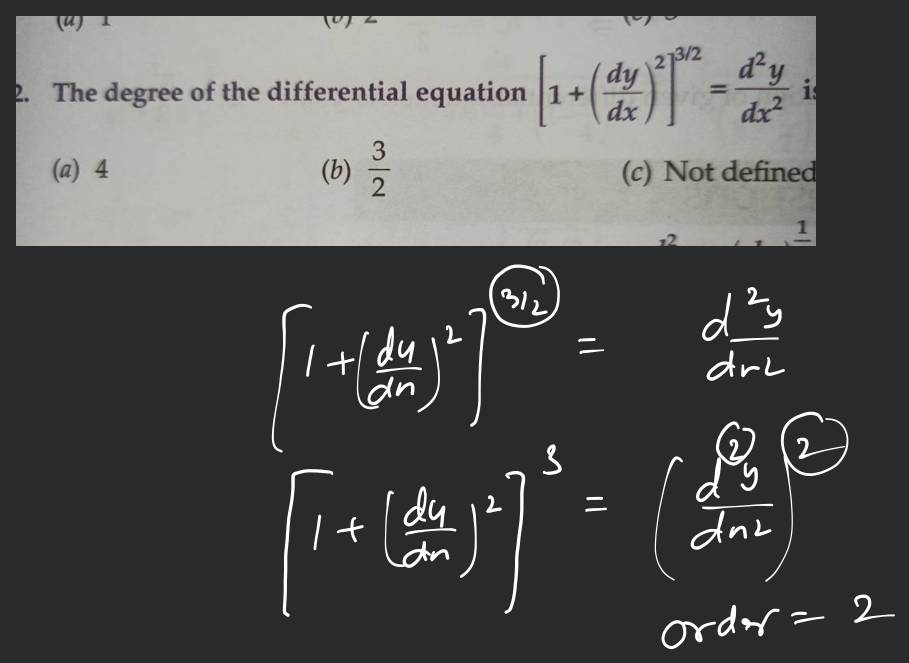 (a) 1 (b) 2
2. The degree of the differential equation [1 + (dy/dx)²]^3/2 = d²y/dx² is
(a) 4 (b) 3/2 (c) Not defined
[1 + (dy/dn)²]^3/2 = d²y/dn2
[1 + (dy/dn)²]³ = (d²y/dn2)²
order = 2